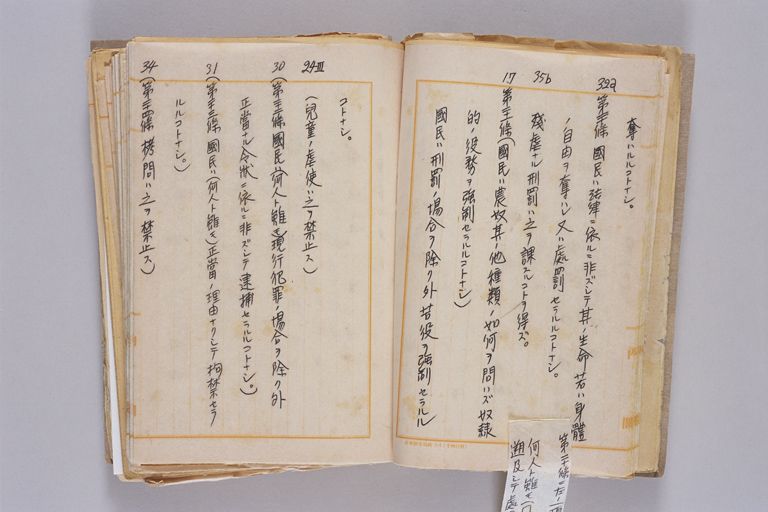 奪ハルルコトナシ。
32a
第三條 國民ハ法律ニ依ルニ非ズシテ其ノ生命若ハ身體
ノ自由ヲ奪ハレ又ハ處罰セラルルコトナシ。
35b
殘虐ナル刑罰ハ之ヲ課スルコトヲ得ズ。
17
(國民ハ農奴其ノ他種類ノ如何ヲ問ハズ奴隸
的ノ役務ヲ強制セラルルコトナシ)
國民ハ刑罰ノ場合ヲ除ク外苦役ヲ強制セラルル
コトナシ。
24-III
(兒童ノ虐使ハ之ヲ禁止ス)
30
國民ハ(何人ト雖モ)現行犯罪ノ場合ヲ除ク外
正當ナル令狀ニ依ルニ非ズシテ逮捕セラルルコトナシ。)
31
國民ハ(何人ト雖モ)正當ノ理由ナクシテ拘禁セラ
ルルコトナシ。)
34
拷問ハ之ヲ禁止ス)
何人ト雖モ
遡及シテ處